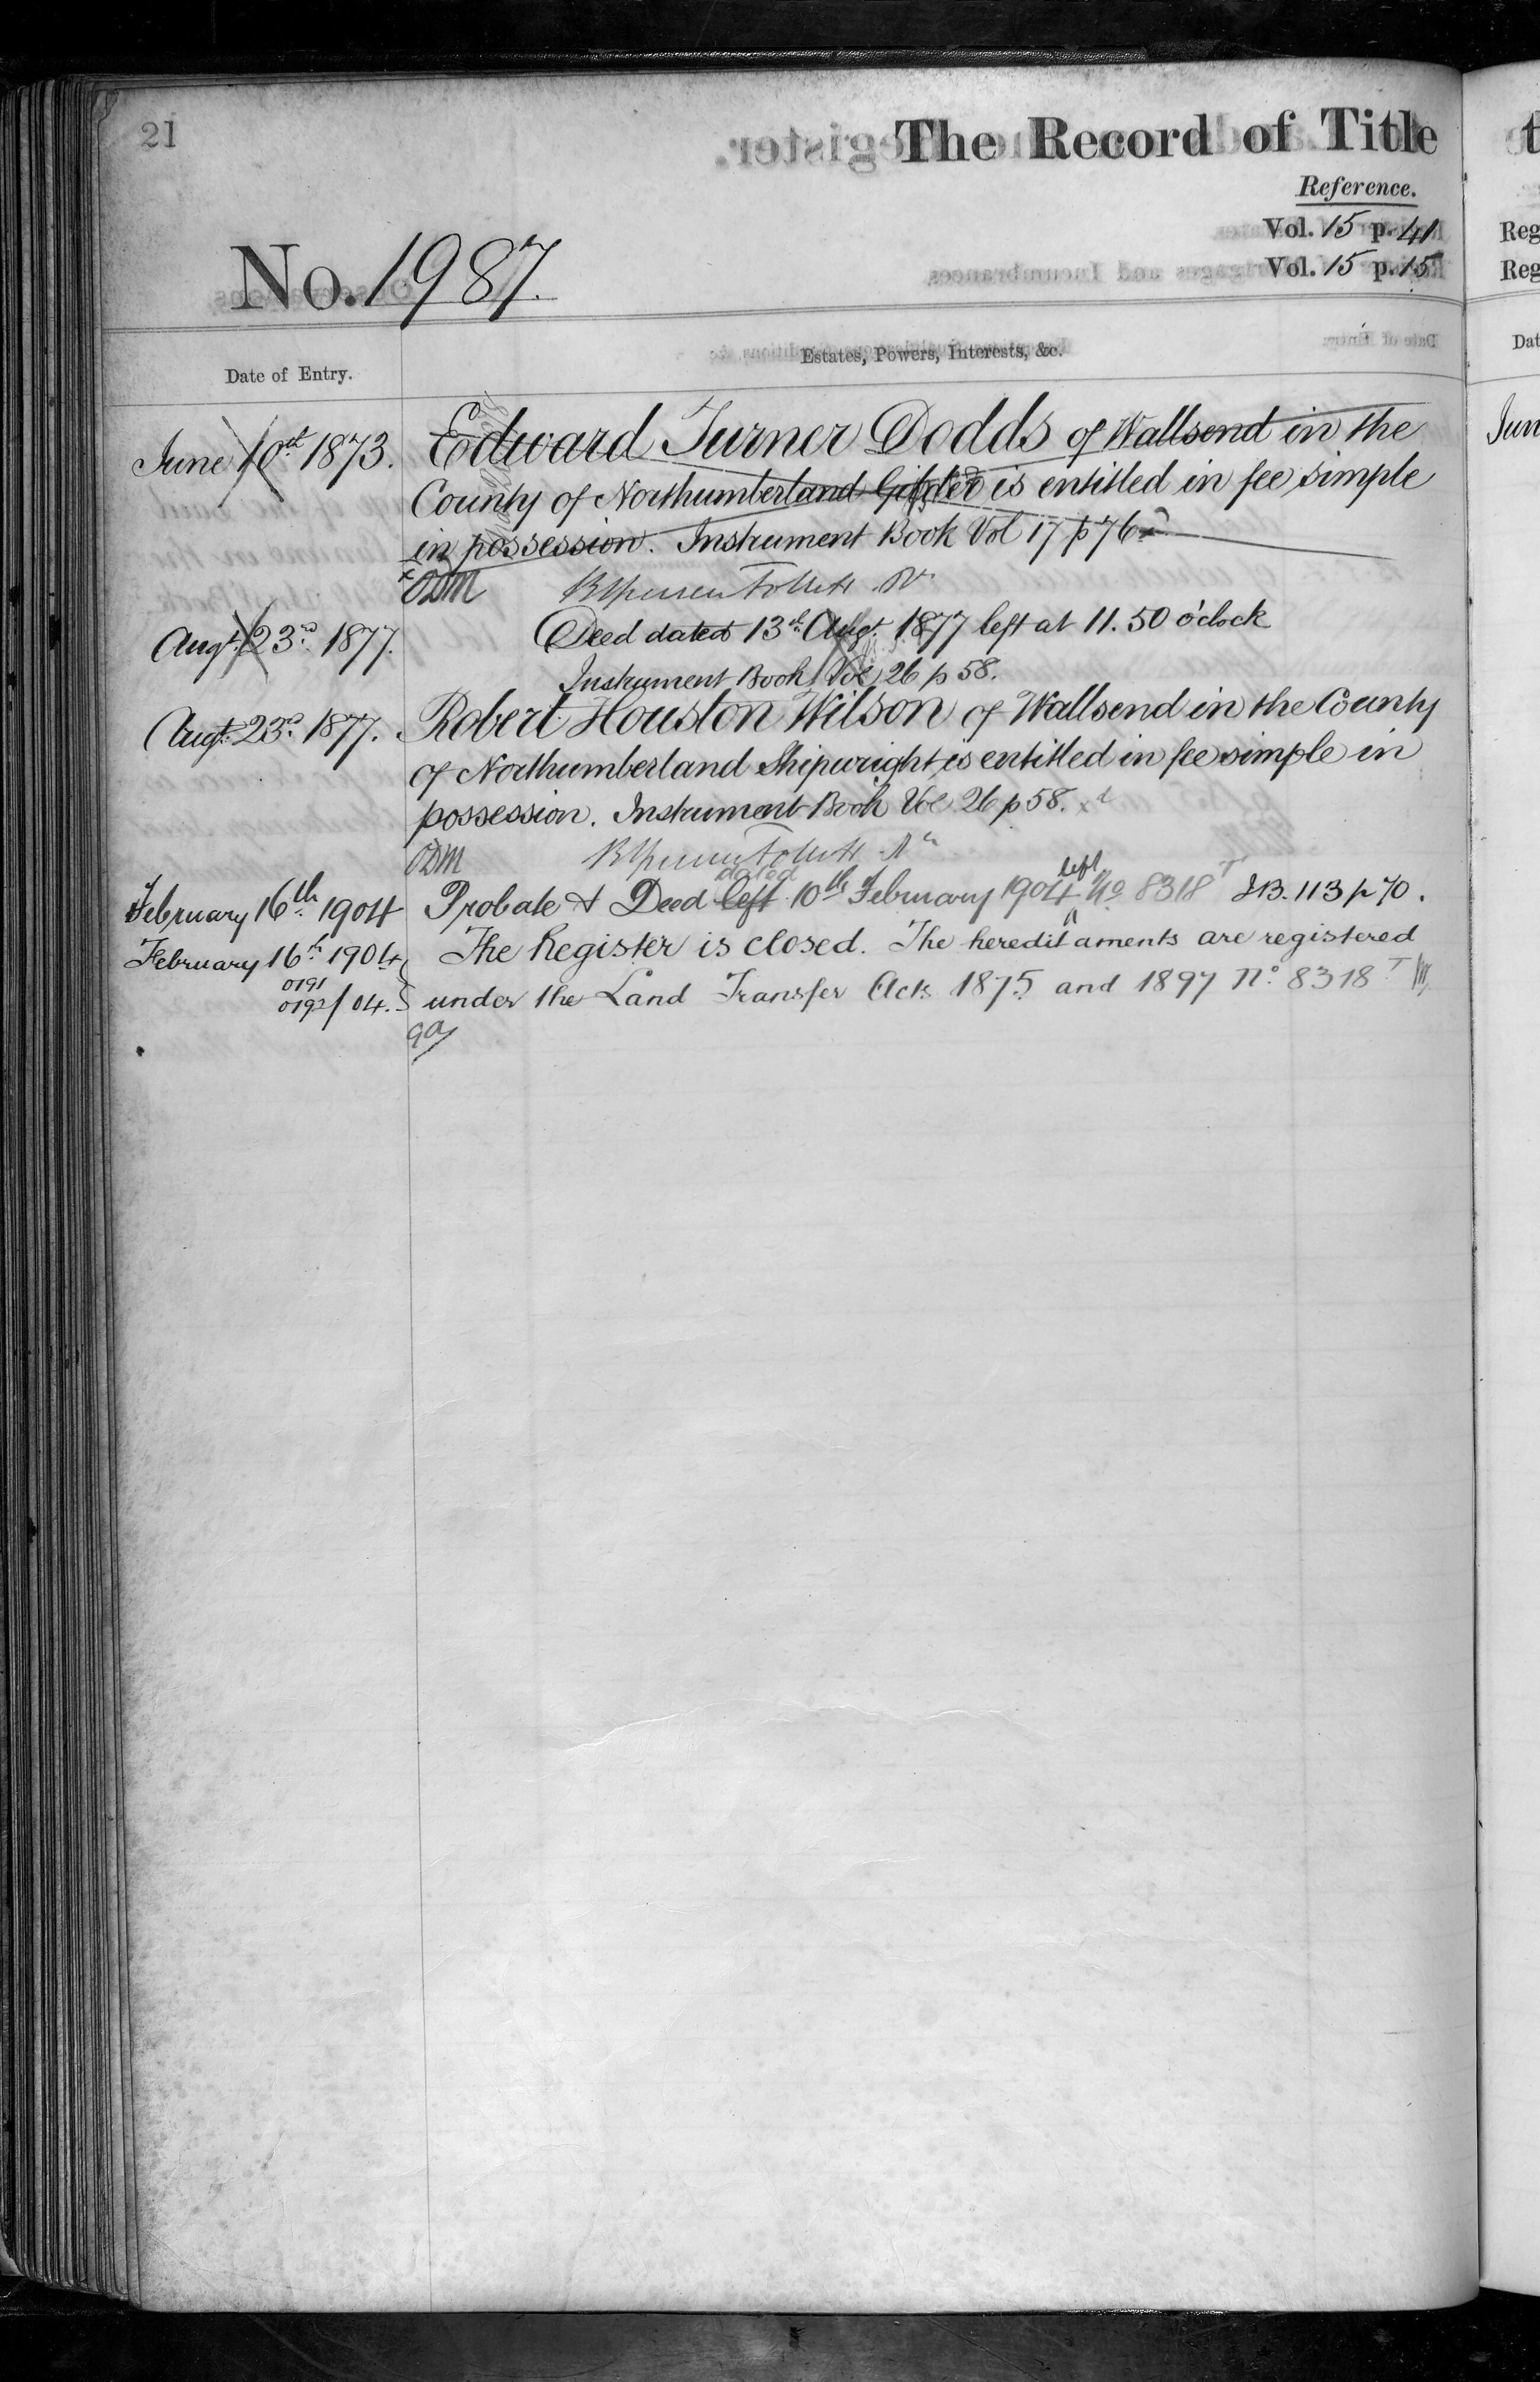 21
The Record of Title
Reference.
Vol. 15 p. 41
Vol. 15 p. 15
No. 1987.
Date of Entry.
Estates, Powers, Interests, &c.
June 10th 1873. Edward Turner Dodds of Wallsend in the
County of Northumberland is entitled in fee simple
in possession. Instrument Book Vol 17 p 76
ODM
Augt. 23rd 1877. Deed dated 13th Augt. 1877 left at 11.50 o'clock
Instrument Book Vol 26 p 58.
Augt. 23rd 1877. Robert Houston Wilson of Wallsend in the County
of Northumberland Shipwright is entitled in fee simple in
possession. Instrument Book Vol 26 p 58.
ODM
dated left
February 16th 1904 Probate & Deed left 10th February 1904 No 8318 T I.B. 113 p 70.
February 16th 1904 The Register is closed. The hereditaments are registered
0191
0192/04. under the Land Transfer Acts 1875 and 1897 No. 8318 T
Reg
Reg
Dat
Jun